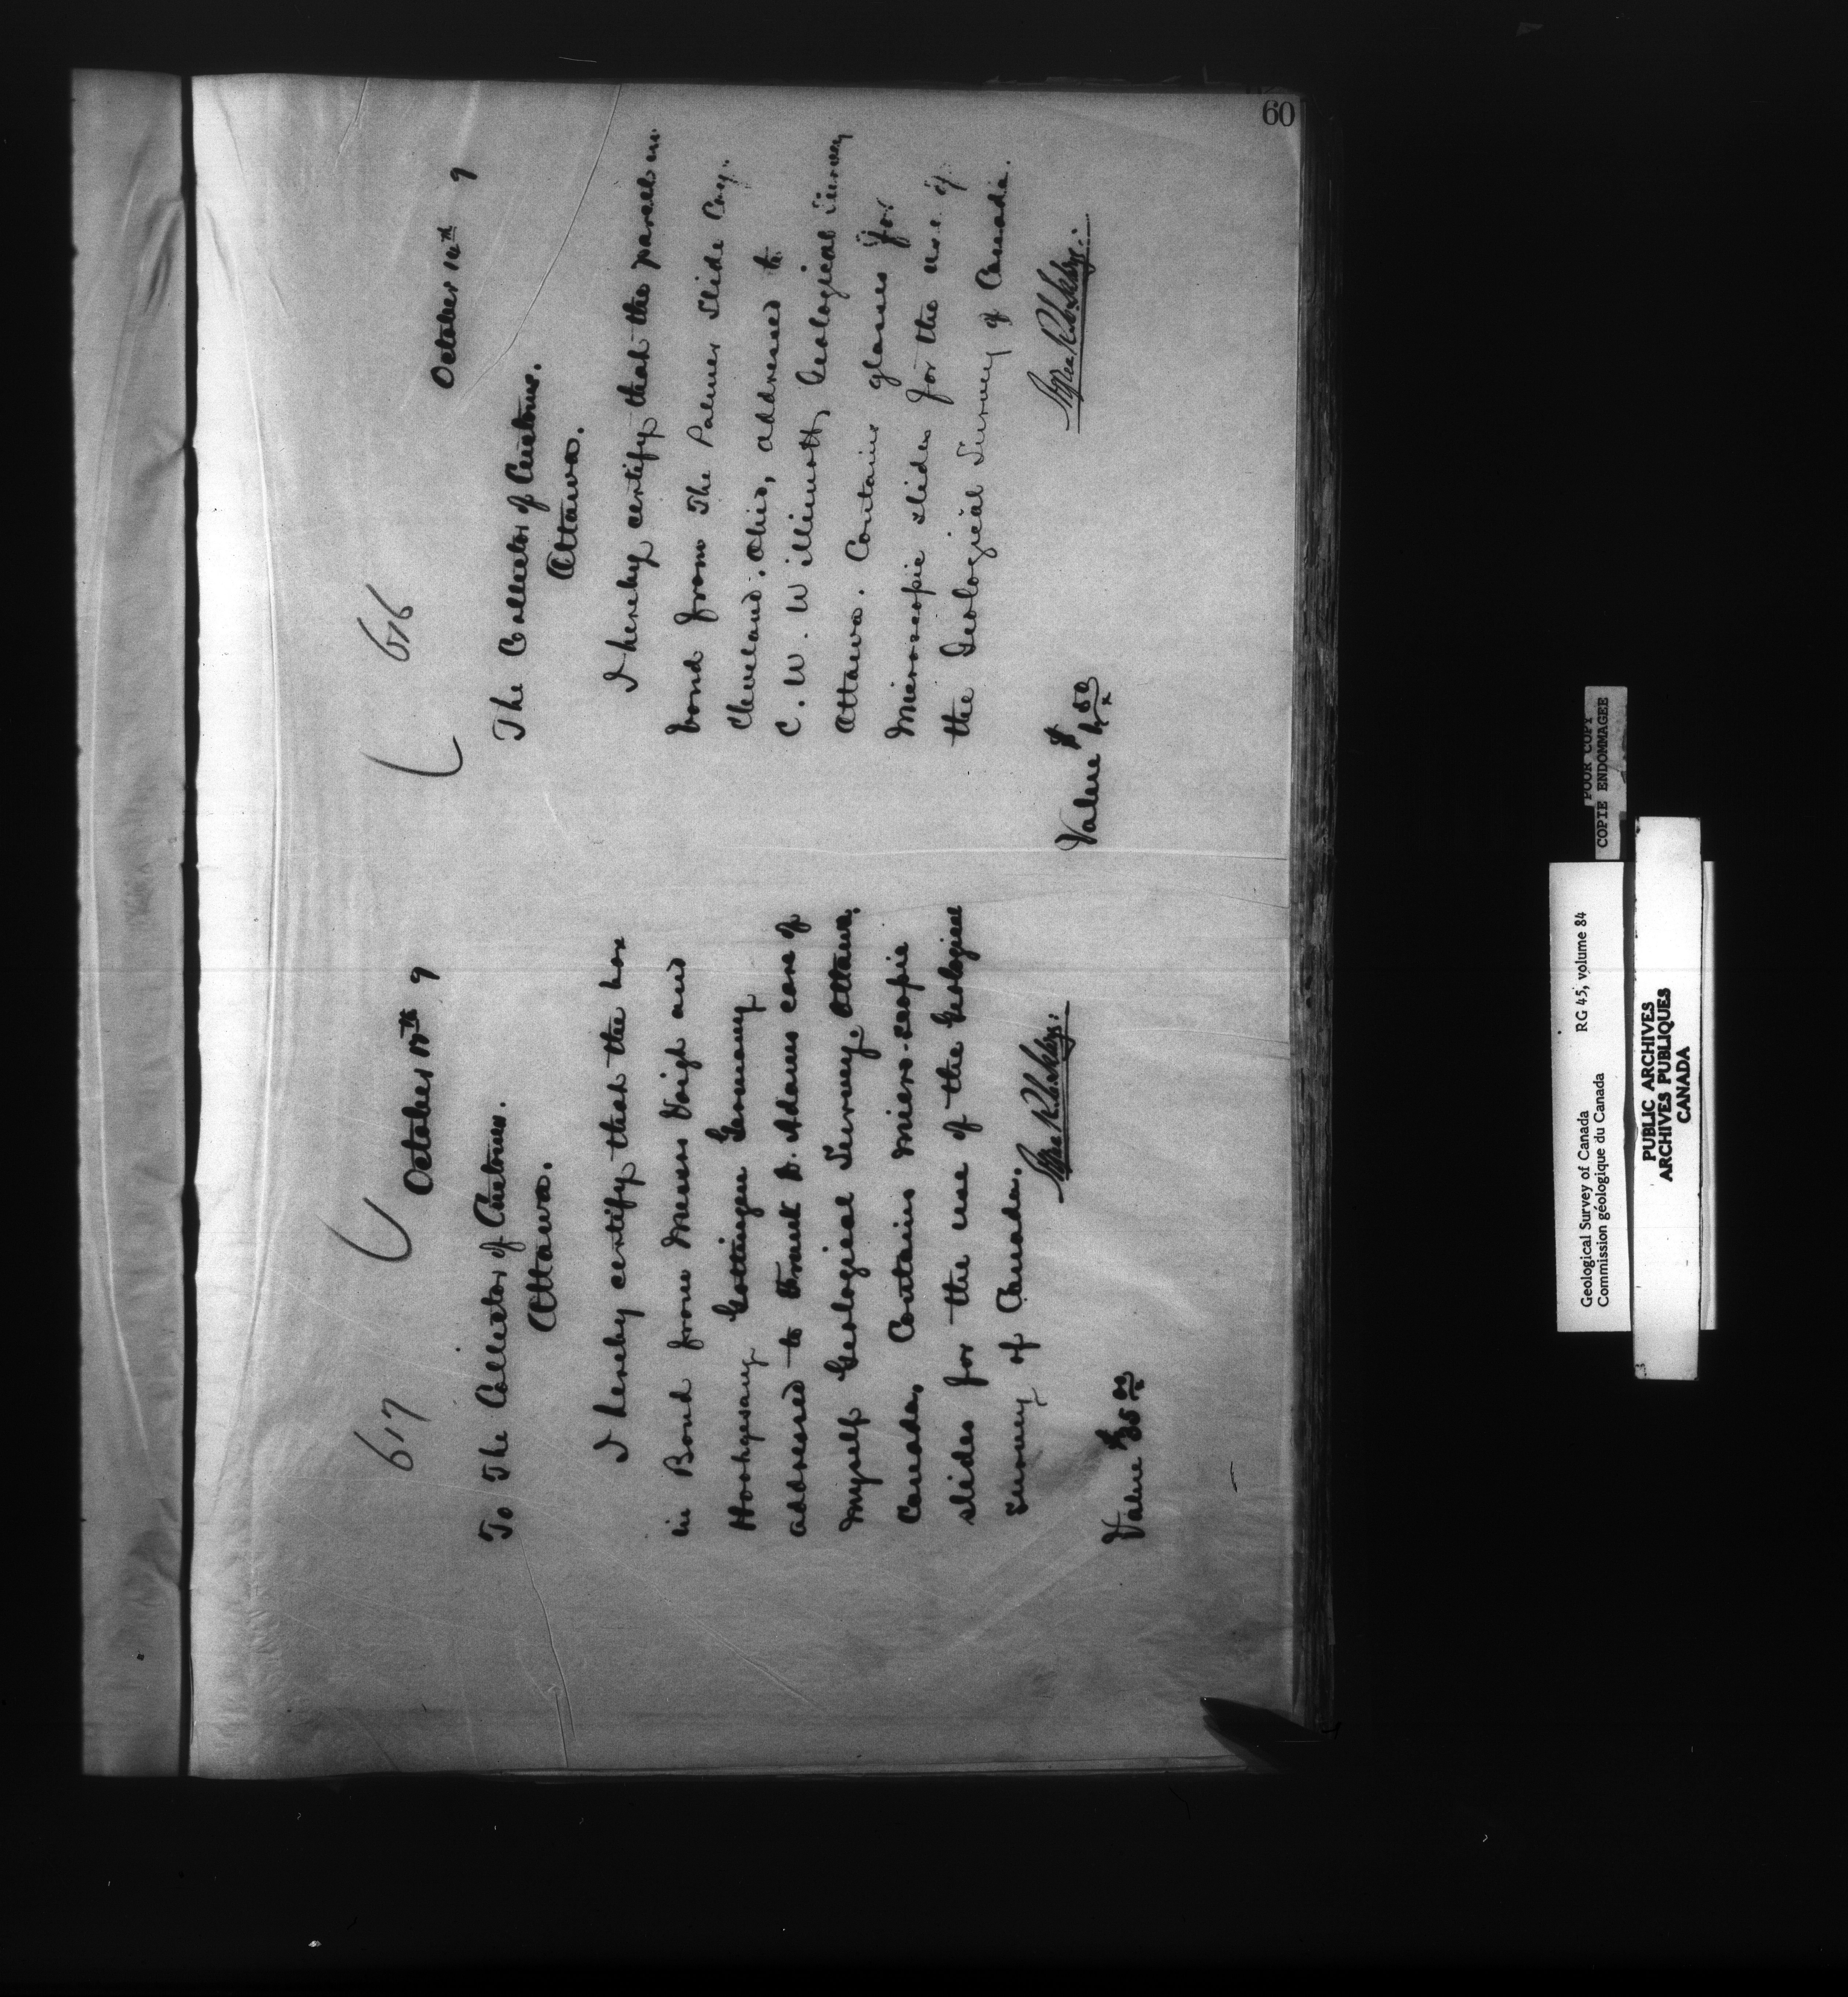 60
617
October 15th 9
To The Collector of Customs.
Ottawa.
I hereby certify that the box
in Bond from Messrs Voigt and
Hochgesang Gottingen Germany
addressed to Frank D. Adams care of
myself Geological Survey Ottawa.
Canada, Contains micro-scopic
slides for the use of the Geological
Survey of Canada.
Value $35 00
616
October 14th 9
The Collector of Customs.
Ottawa.
I hereby certify that the parcel in
bond from The Palmer Slide Coy.
Cleveland. Ohio, addressed to
C. W. Willimott, Geological Survey
Ottawa. Contains glasses for
Microscopic slides for the use of
the Geological Survey of Canada.
Value $ 50
POOR COPY
COPIE ENDOMMAGEE
Geological Survey of Canada RG 45, volume 84
Commission géologique du Canada
PUBLIC ARCHIVES
ARCHIVES PUBLIQUES
CANADA